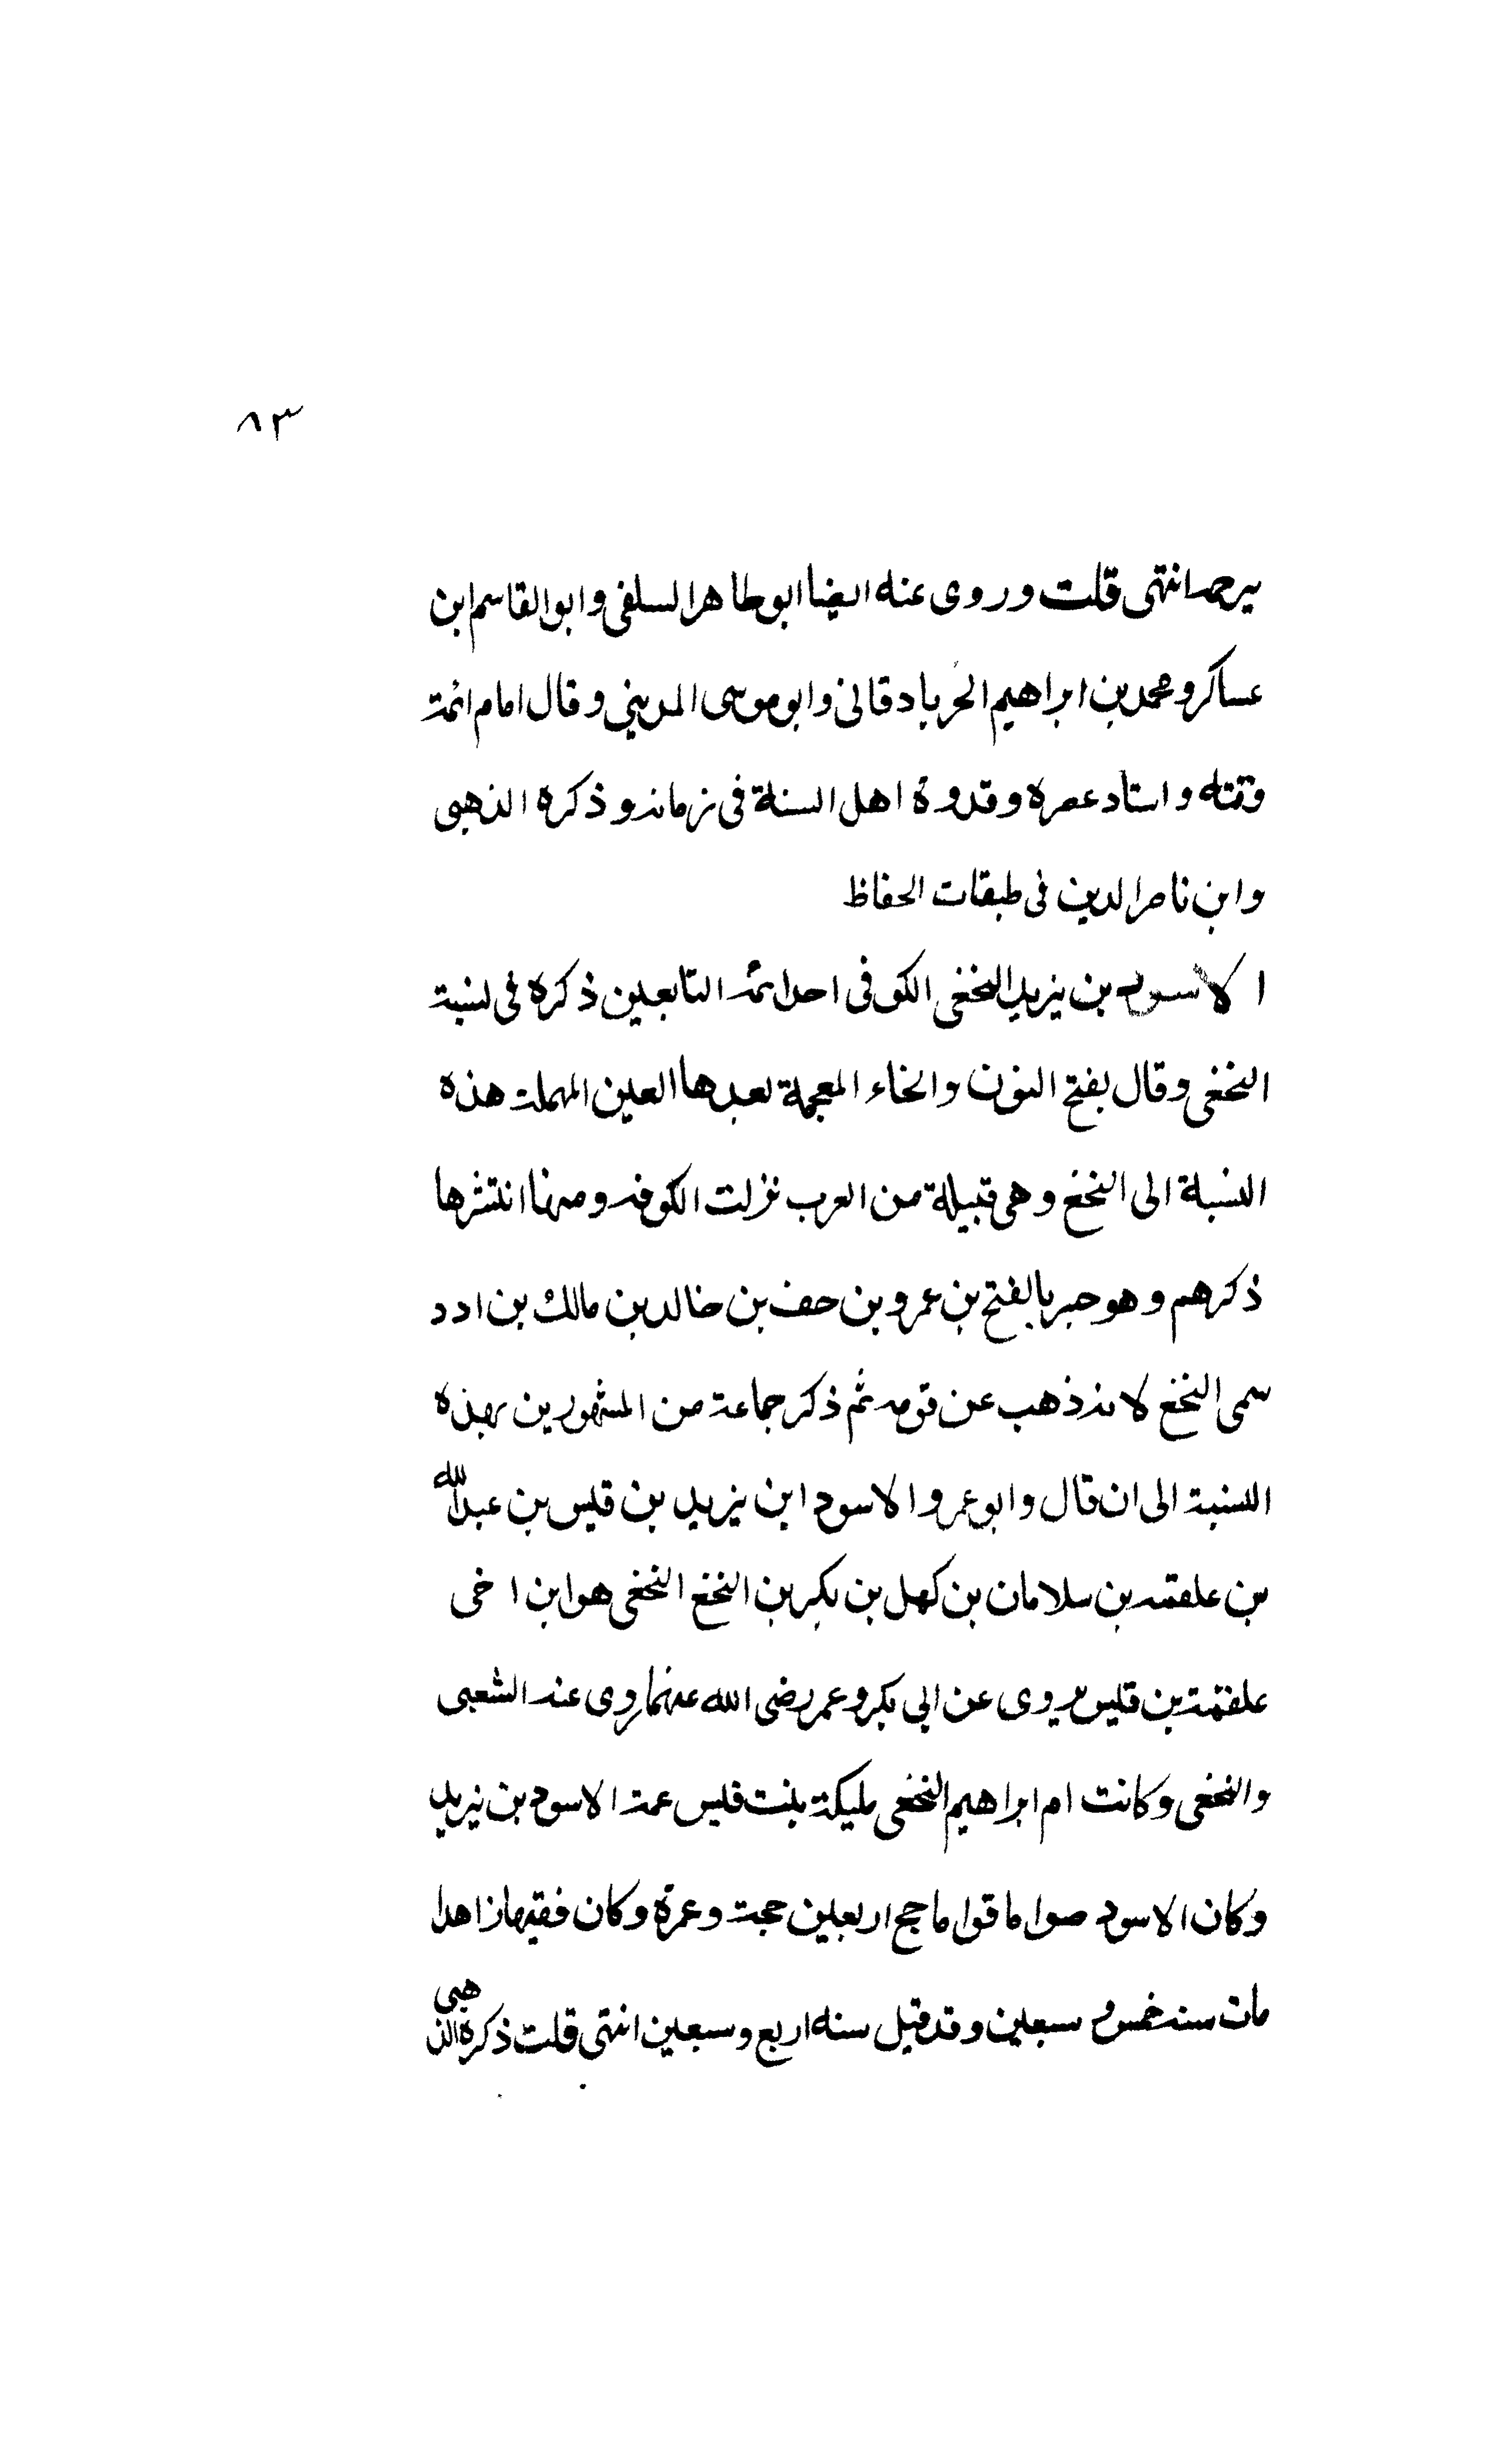 ٨٣
يرحمه انتهى قلت وروى عنه ايضا ابو طاهر السلفي وابو القاسم ابن
عساكر ومحمد بن ابراهيم الجرباد قانى وابو موسى المديني وقال امام ائمة
وقته واستاد عصره وقدوة اهل السنة فى زمانه وذكره الذهبى
وابن ناصر الدين فى طبقات الحفاظ
الاسود بن يزيد النخغى الكوفى احد ائمة التابعين ذكره فى نسبة
النخغى وقال بفتح النون والخاء المعجمة بعدها العين المهملة هذه
النسبة الى النخع وهى قبيلة من العرب نزلت الكوفه ومنها انتشرها
ذكرهم وهو حبر بالفتح بن عمرو بن حف بن خالد بن مالك بن ادد
سمى النخع لانه ذهب عن قومه ثم ذكر جماعة من المشهورين بهذه
النسبة الى ان قال وابو عمرو الاسود ابن يزيد بن قيس بن عبد الله
بن علقمه بن سلامان بن كهل بن بكر بن النخع النخعى هو ابن اخى
علقمة بن قيس يروى عن ابى بكر وعمر رضى الله عنهما روى عنه الشعبى
والنخعى وكانت ام ابراهيم النخعى مليكة بنت قيس عمة الاسود بن يزيد
وكان الاسود صواما قواما حج اربعين حجة وعمرة وكان فقيها زاهدا
مات سنة خمس وسبعين وقد قيل سنه اربع وسبعين انتهى قلت ذكره الذهبى